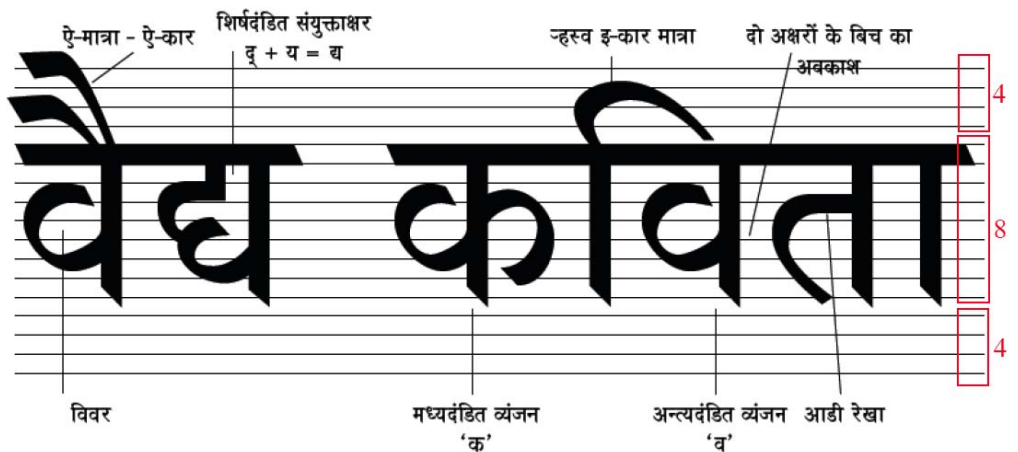 ऐ-मात्रा - ऐ-कार
शिर्षदंडित संयुक्ताक्षर
द् + य = द्य
ऱ्हस्व इ-कार मात्रा
दो अक्षरों के बिच का
अवकाश
4
वैद्य कविता
8
4
विवर
मध्यदंडित व्यंजन
‘क’
अन्त्यदंडित व्यंजन
‘व’
आडी रेखा